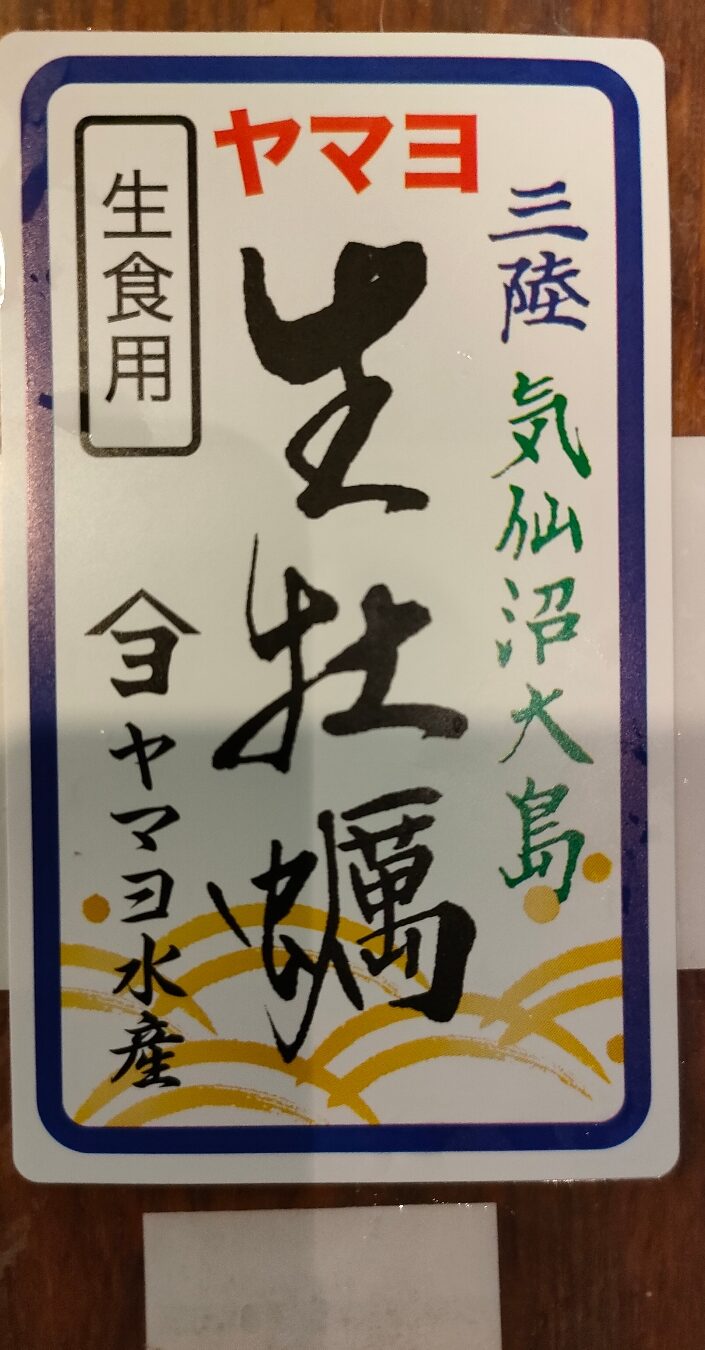 ヤマヨ
三陸 気仙沼大島
生牡蠣
生食用
ヨ ヤマヨ水産